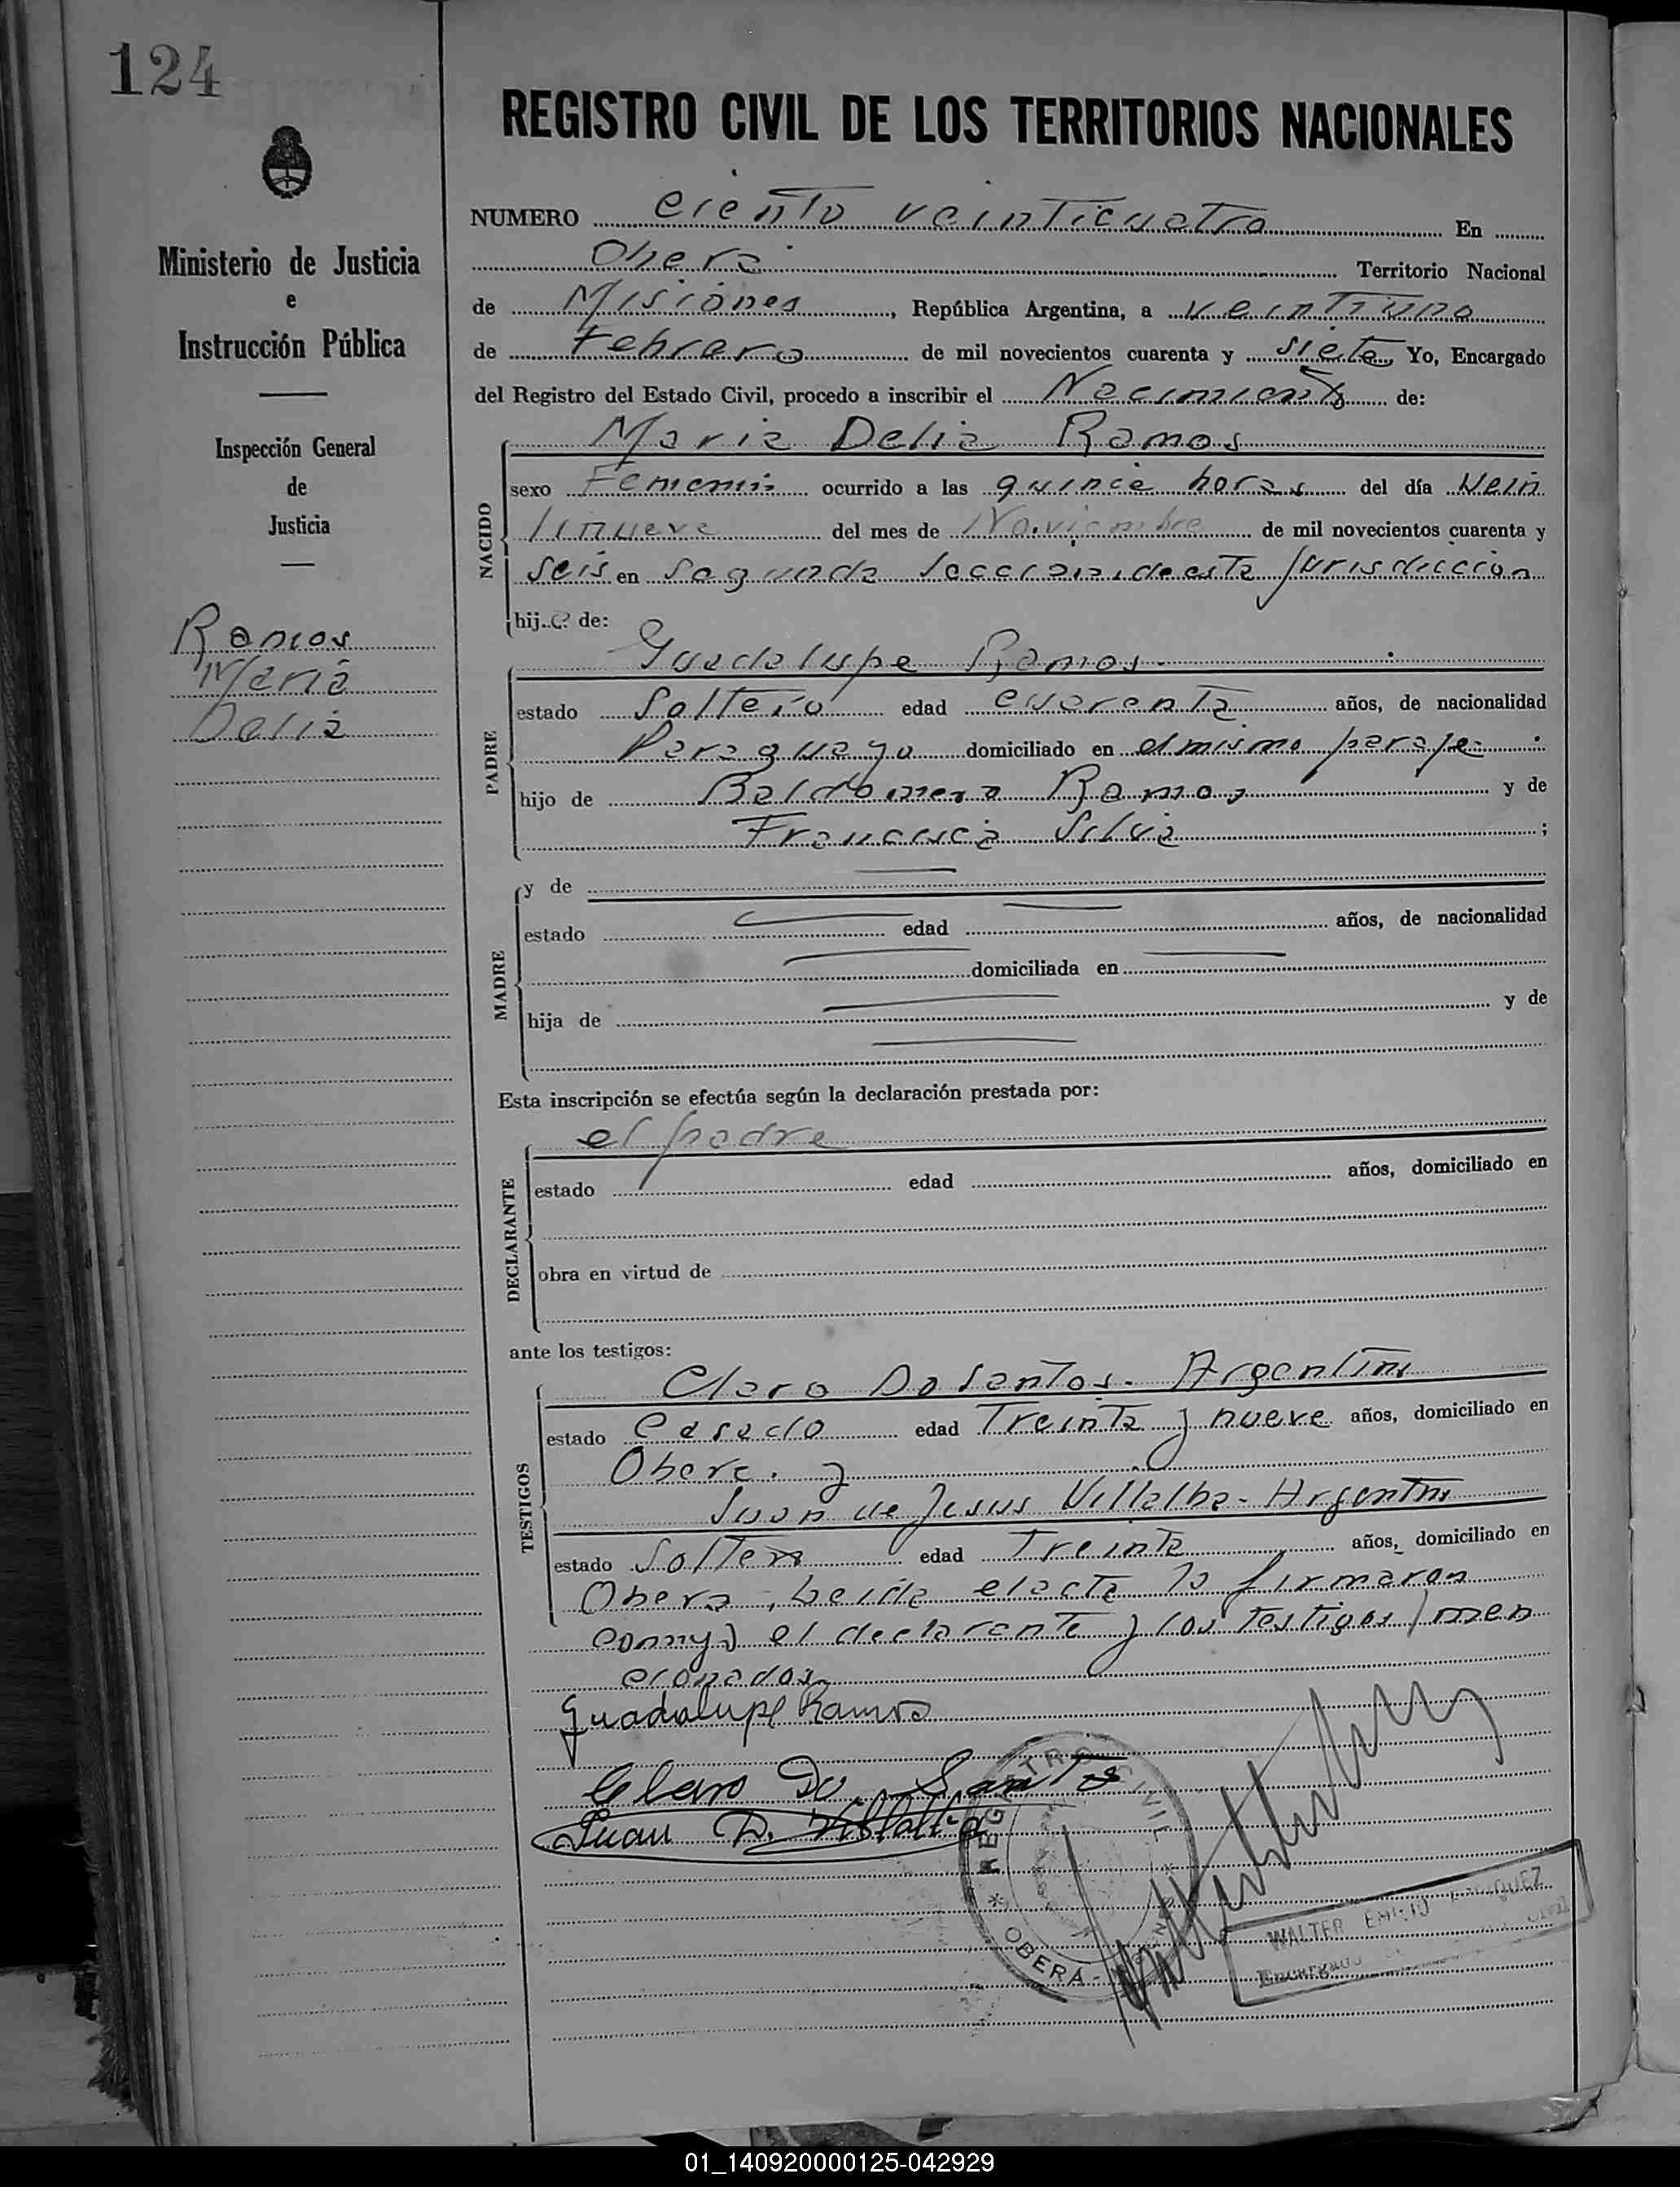 124
REGISTRO CIVIL DE LOS TERRITORIOS NACIONALES
Ministerio de Justicia
e
Instrucción Pública
Inspección General
de
Justicia
Ramos
Maria
Delia
NUMERO ciento veinticuatro En
Obera Territorio Nacional
de Misiones, República Argentina, a veintiuno
de Febrero de mil novecientos cuarenta y siete Yo, Encargado
del Registro del Estado Civil, procedo a inscribir el Nacimiento de:
NACIDO
Maria Delia Ramos
sexo Femenino ocurrido a las quince horas del día Vein
tinueve del mes de Noviembre de mil novecientos cuarenta y
seis en Segunda Seccion, de esta Jurisdiccion
hija de:
PADRE
Guadalupe Ramos
estado Soltero edad cuarenta años, de nacionalidad
Paraguayo domiciliado en el mismo paraje
hijo de Baldomero Ramos y de
Francisca Silvia;
MADRE
y de
estado edad años, de nacionalidad
domiciliada en
hija de y de
Esta inscripción se efectúa según la declaración prestada por:
DECLARANTE
el padre
estado edad años, domiciliado en
obra en virtud de
ante los testigos:
TESTIGOS
Claro Do Santos. Argentino
estado Casado edad Treinta y nueve años, domiciliado en
Obera. y
Juan de Jesus Villalba - Argentino
estado Soltero edad Treinta años, domiciliado en
Obera, Leida el acta la firmaron
conmigo el declarante y los testigos men
cionados
Guadalupe Ramos
Claro Do Santos
Juan D. Villalba
REGISTRO CIVIL
* OBERÁ -
WALTER EMILIO
Encargado
01_140920000125-042929